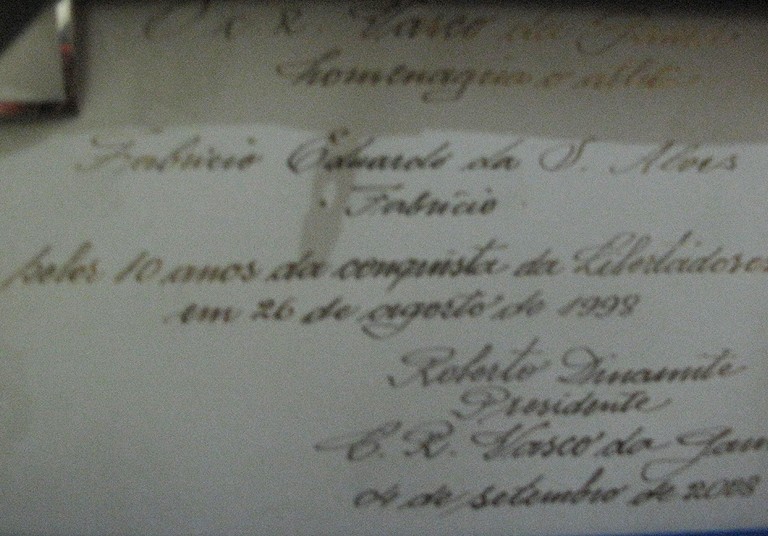 O C. R. Vasco da Gama
homenageia o atleta
Fabrício Eduardo da S. Alves
Fabrício
pelos 10 anos da conquista da Libertadores
em 26 de agosto de 1998
Roberto Dinamite
Presidente
C. R. Vasco da Gam
04 de setembro de 2008